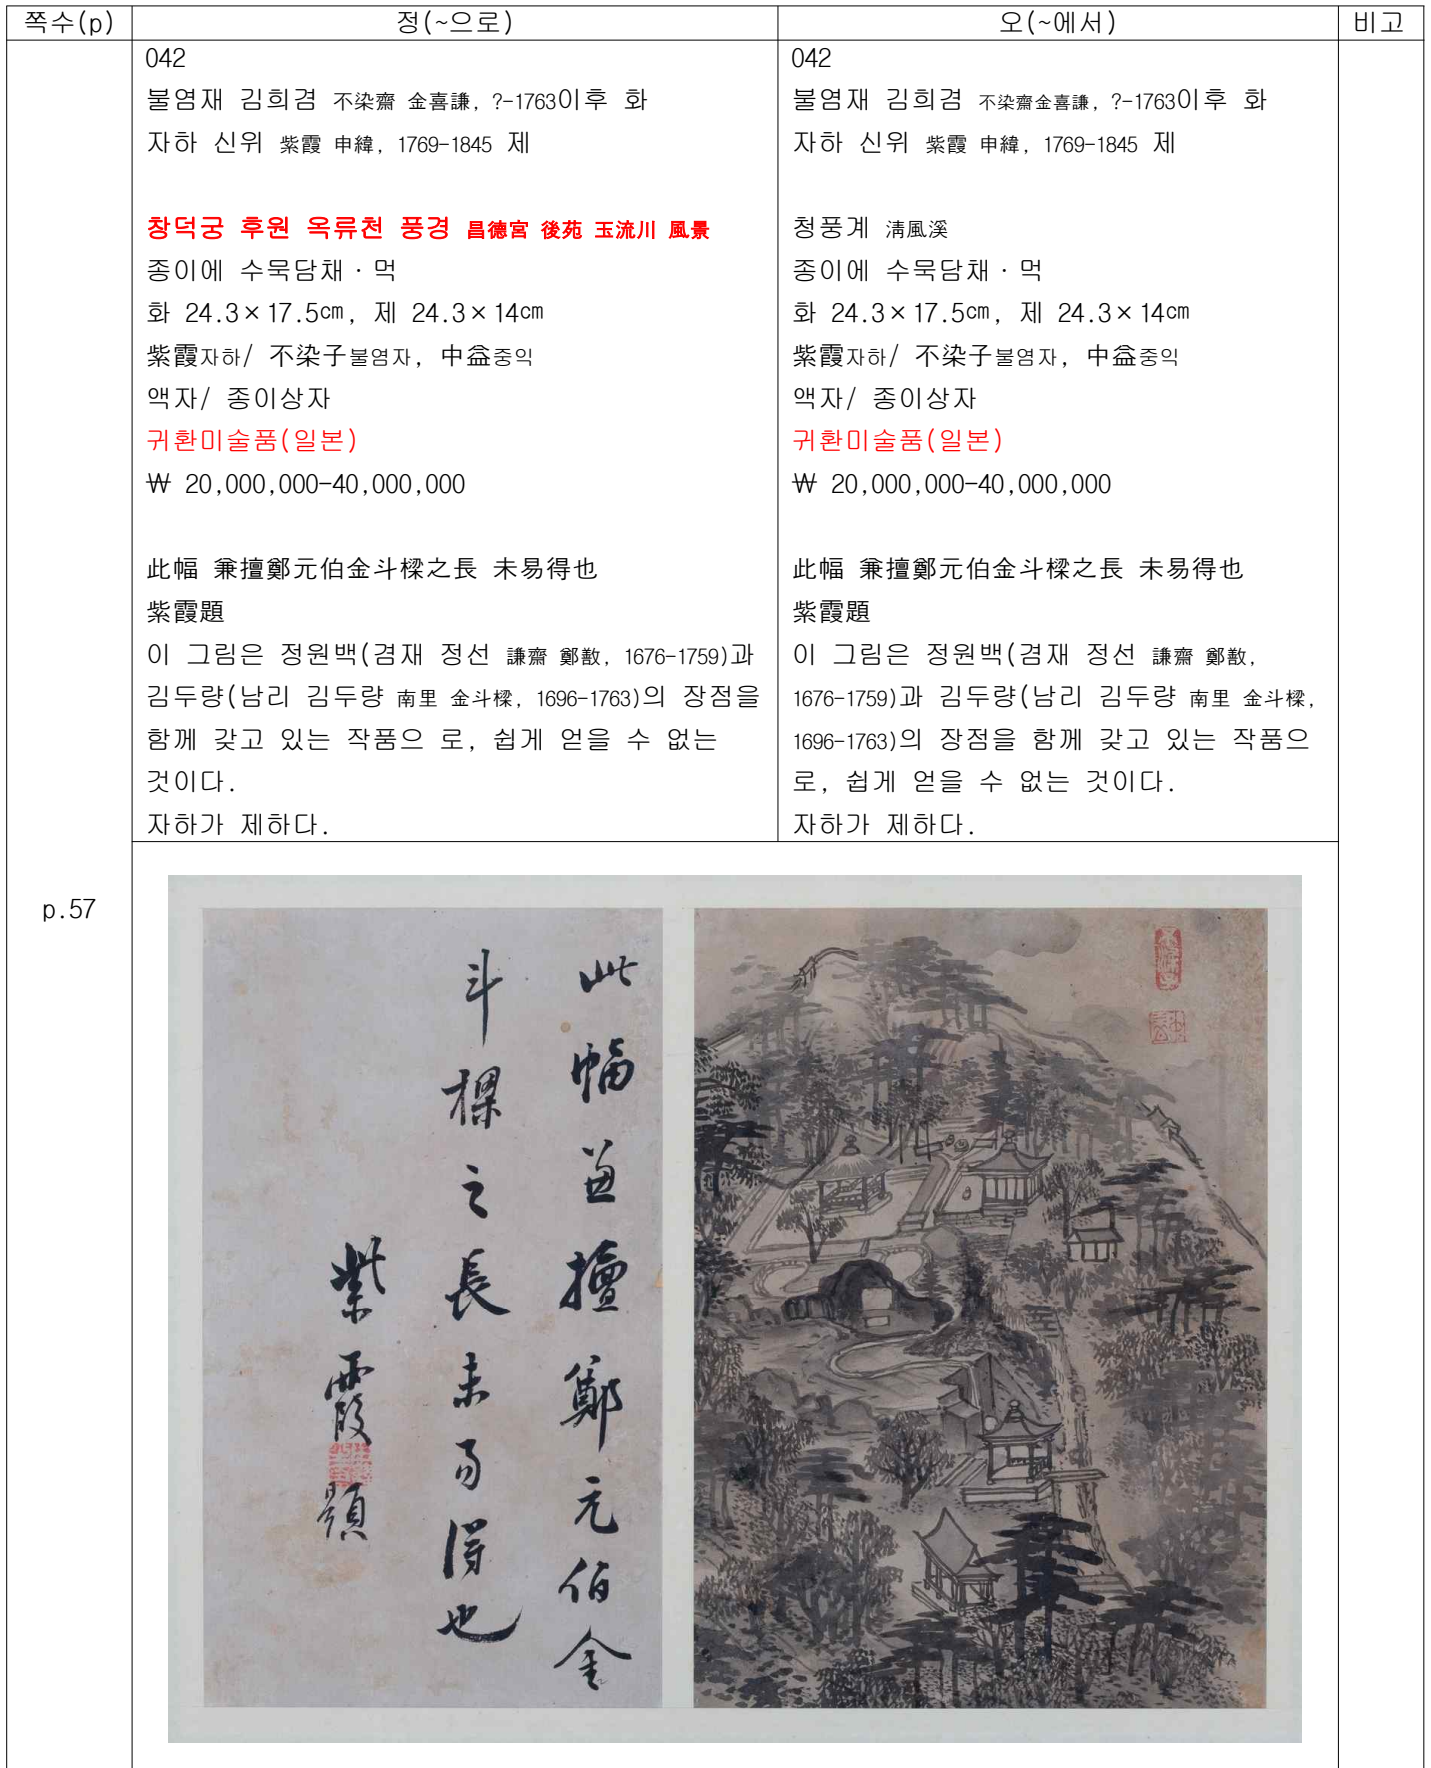 쪽수(p)
정(~으로)
오(~에서)
비고
p.57
042
불염재 김희겸 不染齋 金喜謙, ?-1763이후 화
자하 신위 紫霞 申緯, 1769-1845 제
창덕궁 후원 옥류천 풍경 昌德宮 後苑 玉流川 風景
종이에 수묵담채·먹
화 24.3×17.5㎝, 제 24.3×14㎝
紫霞자하/ 不染子불염자, 中益중익
액자/ 종이상자
귀환미술품(일본)
₩ 20,000,000-40,000,000
此幅 兼擅鄭元伯金斗樑之長 未易得也
紫霞題
이 그림은 정원백(겸재 정선 謙齋 鄭敾, 1676-1759)과
김두량(남리 김두량 南里 金斗樑, 1696-1763)의 장점을
함께 갖고 있는 작품으 로, 쉽게 얻을 수 없는
것이다.
자하가 제하다.
042
불염재 김희겸 不染齋金喜謙, ?-1763이후 화
자하 신위 紫霞 申緯, 1769-1845 제
청풍계 淸風溪
종이에 수묵담채·먹
화 24.3×17.5㎝, 제 24.3×14㎝
紫霞자하/ 不染子불염자, 中益중익
액자/ 종이상자
귀환미술품(일본)
₩ 20,000,000-40,000,000
此幅 兼擅鄭元伯金斗樑之長 未易得也
紫霞題
이 그림은 정원백(겸재 정선 謙齋 鄭敾,
1676-1759)과 김두량(남리 김두량 南里 金斗樑,
1696-1763)의 장점을 함께 갖고 있는 작품으
로, 쉽게 얻을 수 없는 것이다.
자하가 제하다.
此幅兼擅鄭元伯金
斗樑之長未易得也
紫霞題
不染子